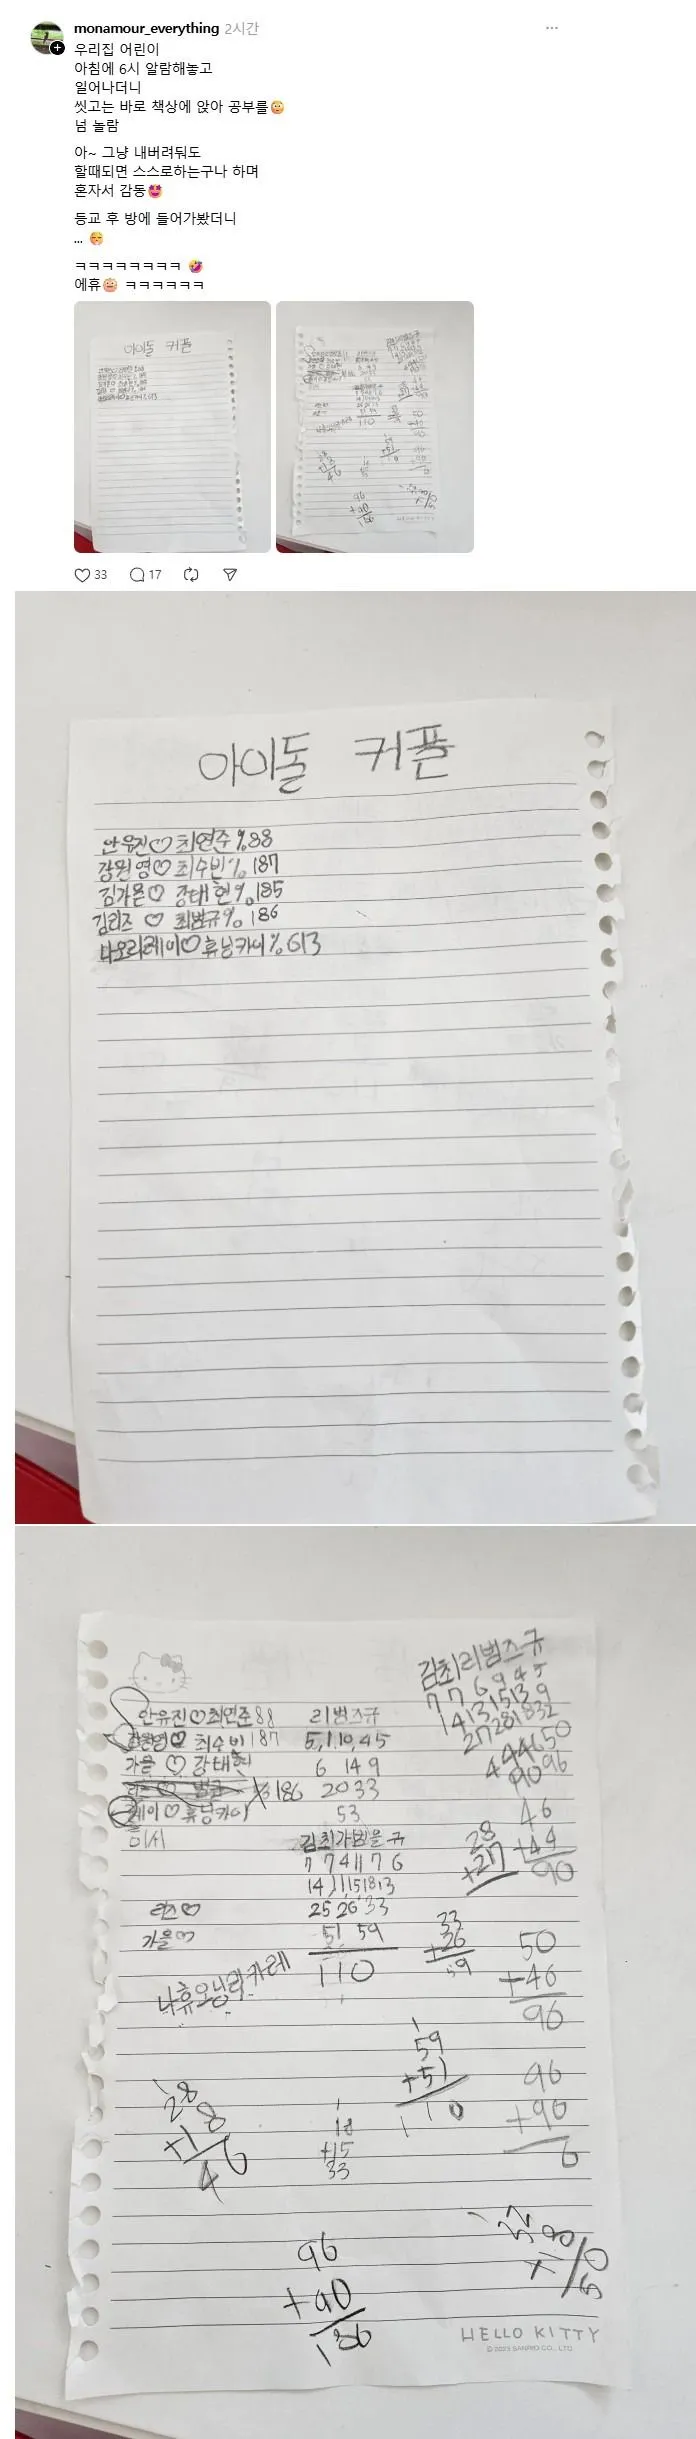 monamour_everything 2시간
우리집 어린이
아침에 6시 알람해놓고
일어나더니
씻고는 바로 책상에 앉아 공부를
넘 놀람
아~ 그냥 내버려둬도
할때되면 스스로하는구나 하며
혼자서 감동
등교 후 방에 들어가봤더니
...
ㅋㅋㅋㅋㅋㅋㅋㅋ
에휴 ㅋㅋㅋㅋㅋㅋ
33 17
아이돌 커플
안유진♡최연준%88
장원영♡최수빈%187
김가을♡강태현%185
김리즈♡최범규%186
나오리레이♡휴닝카이%613
안유진♡최연준88
장원영♡최수빈187
가을♡강태현
레이♡휴닝카이
리즈♡
가을♡
나휴오닝리카레
리범즈규
5,1,10,45
6 14 9
20 33
53
김최가범을규
7 7 4 11 7 6
14,11,15 18 13
25 26 33
51 59
110
김최리범즈규
7 7 6 9 4 5
14 13 15 13 9
27 28 28 32
90 96
46
+44
90
28
+27
33
+26
59
50
+46
96
59
+51
110
96
+90
6
28
+18
46
18
+15
33
96
+90
186
32
+18
50
HELLO KITTY
© 2023 SANRIO CO., LTD.